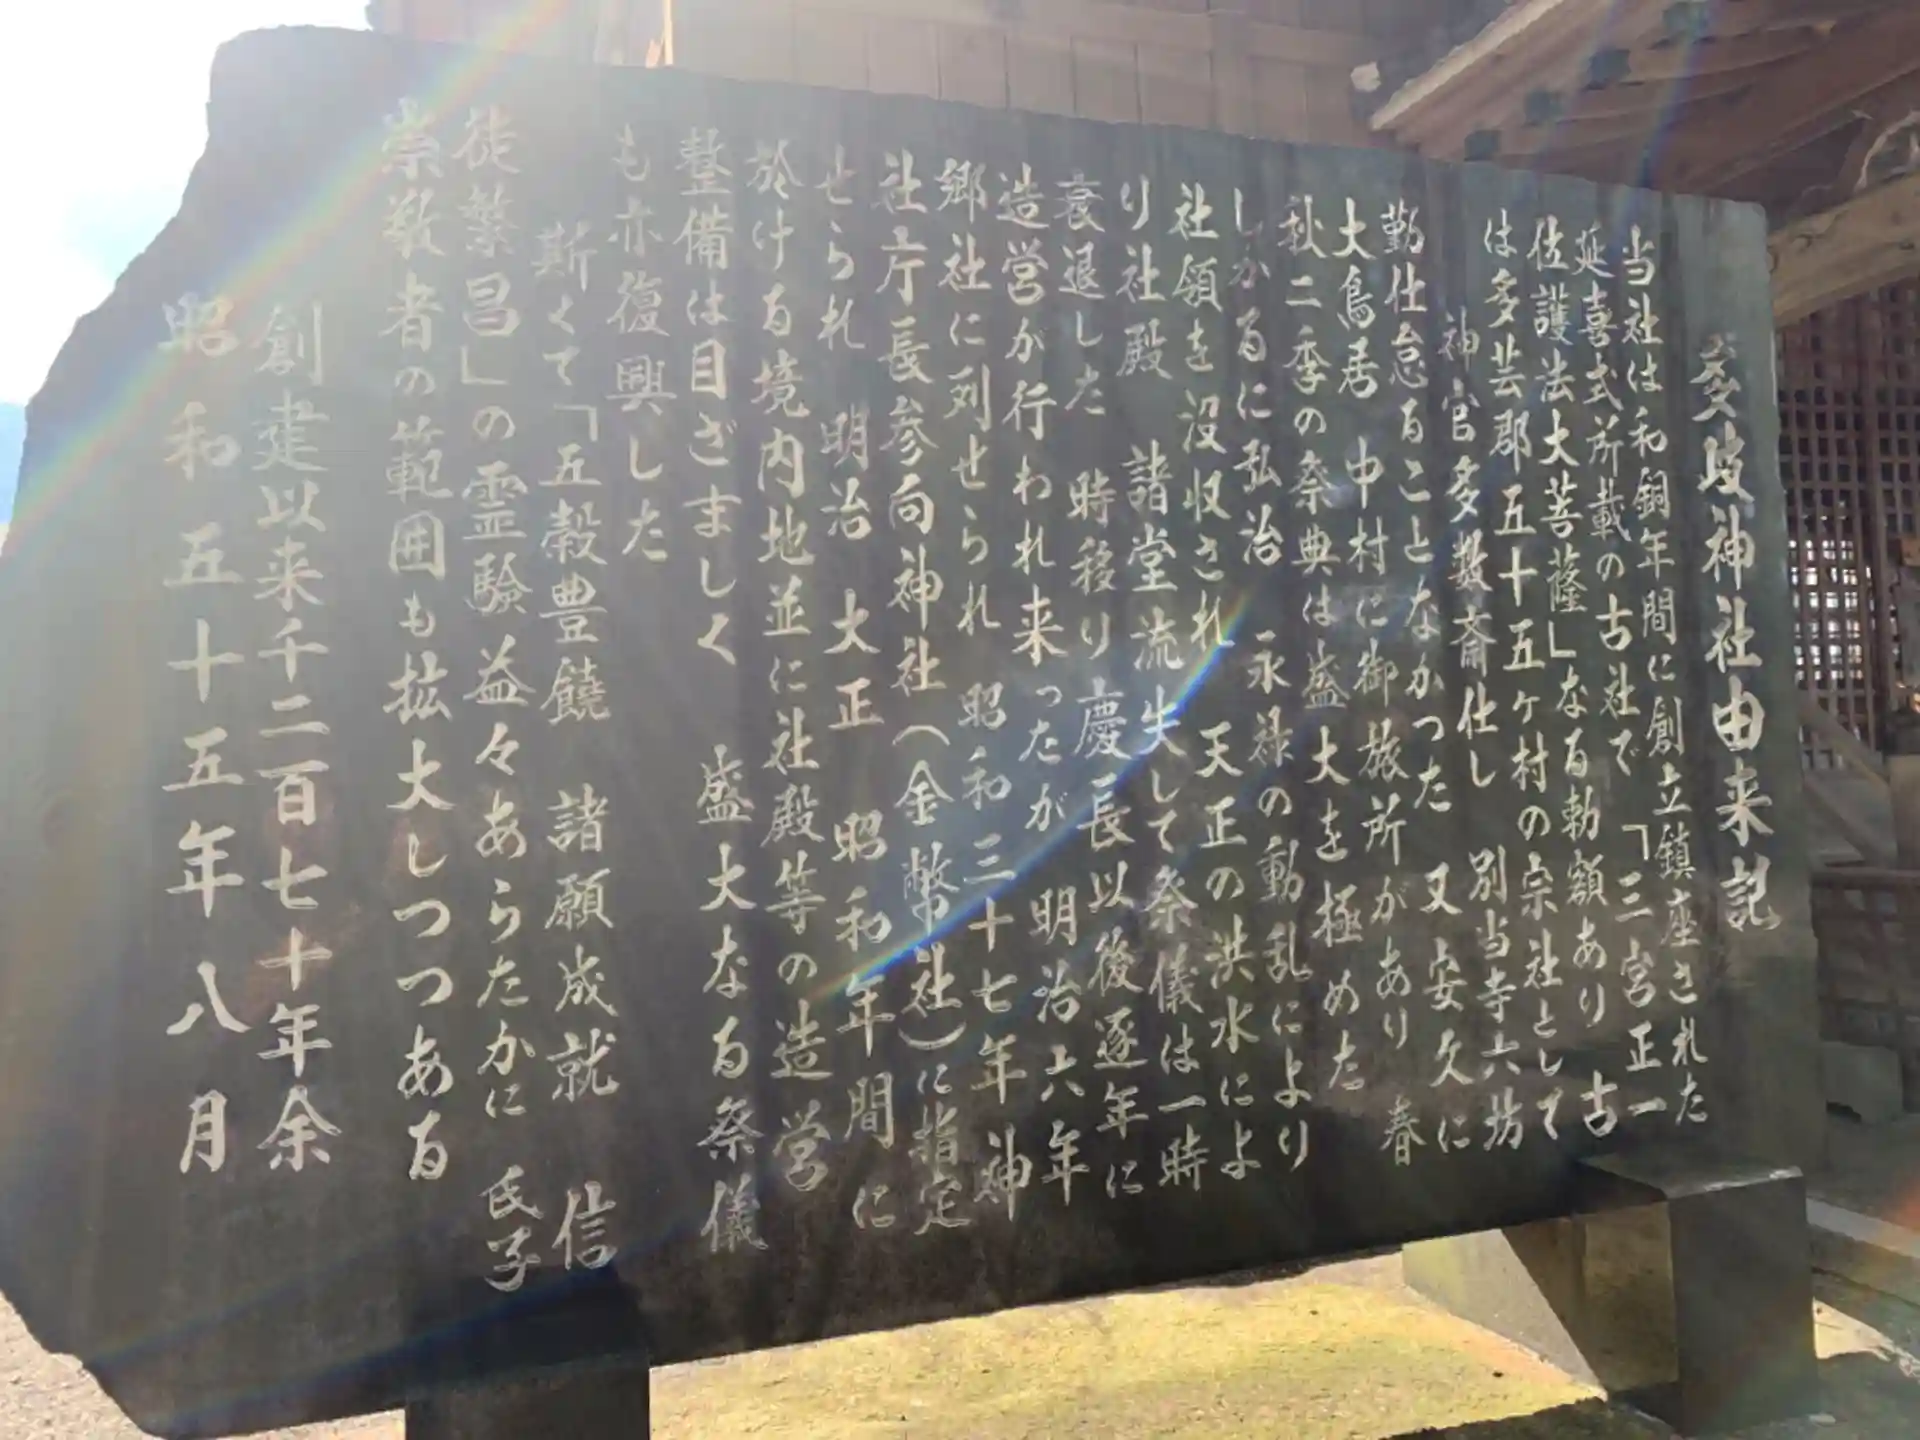 多岐神社由来記
当社は和銅年間に創立鎮座された
延喜式所載の古社で 「三宮正一
位護法大菩薩」なる勅額あり 古
は多芸郡五十五ヶ村の宗社として
神官多数斎仕し 別当寺六坊
勤仕怠ることなかつた 又安久に
大鳥居 中村に御旅所があり 春
秋二季の祭典は盛大を極めた
しかるに弘治 永禄の動乱により
社領を没収され 天正の洪水によ
り社殿 諸堂流失して祭儀は一時
衰退した 時移り慶長以後逐年に
造営が行われ来つたが 明治六年
郷社に列せられ 昭和三十七年神
社庁長参向神社(金幣社)に指定
せられ 明治 大正 昭和年間に
於ける境内地並に社殿等の造営
整備は目ざましく 盛大なる祭儀
も亦復興した
斯くて「五穀豊饒 諸願成就 信
徒繁昌」の霊験益々あらたかに 氏子
崇敬者の範囲も拡大しつつある
創建以来千二百七十年余
昭和五十五年八月